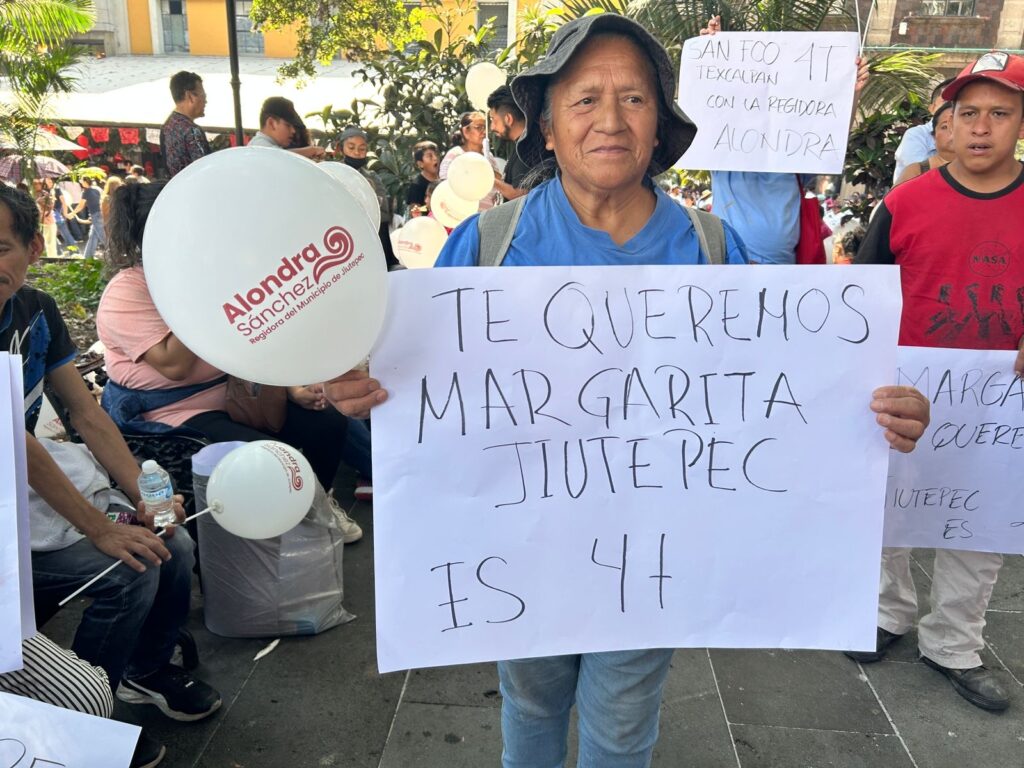 SAN FCO 4T
TEXCALPAN
CON LA REGIDORA
ALONDRA
NASA
Alondra
Sánchez
Regidora del Municipio de Jiutepec
TE QUEREMOS
MARGARITA
JIUTEPEC
IS 4t
MARGA
QUERE
JIUTEPEC
ES
Alondra